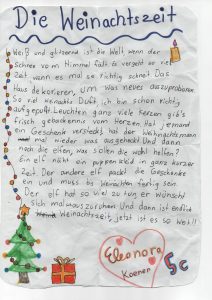 Die Weinachtszeit
Weiß und glitzernd ist die Welt wenn der
Schnee vom Himmel fällt. Es vergeht so viel
Zeit wenn es mal so richtig schneit. Das
Haus dekorieren, um was neues auszuprobieren.
So viel weinachts Duft ich bin schon richtig
aufgepufft. Leuchten ganz viele herzen gib's
frisch gebackene vom Herzen. hat jemand
ein Geschenke versteckt hat der Weihnachtsmann
mal wieder was ausgeheckt. Und dann
noch die elfen, was sollen die wohl helfen?
Ein elf näht ein puppenkleid in ganz kurzer
Zeit. Der andere elf packt die Geschenke
ein und muss bis Weinachten fertig sein.
Der elf hat so viel zu tun er wünscht
sich mal auszuruhen. Und dann ist endlich
Weinachtszeit, jetzt ist es so weit!!
Eleonora
Koenen
5c